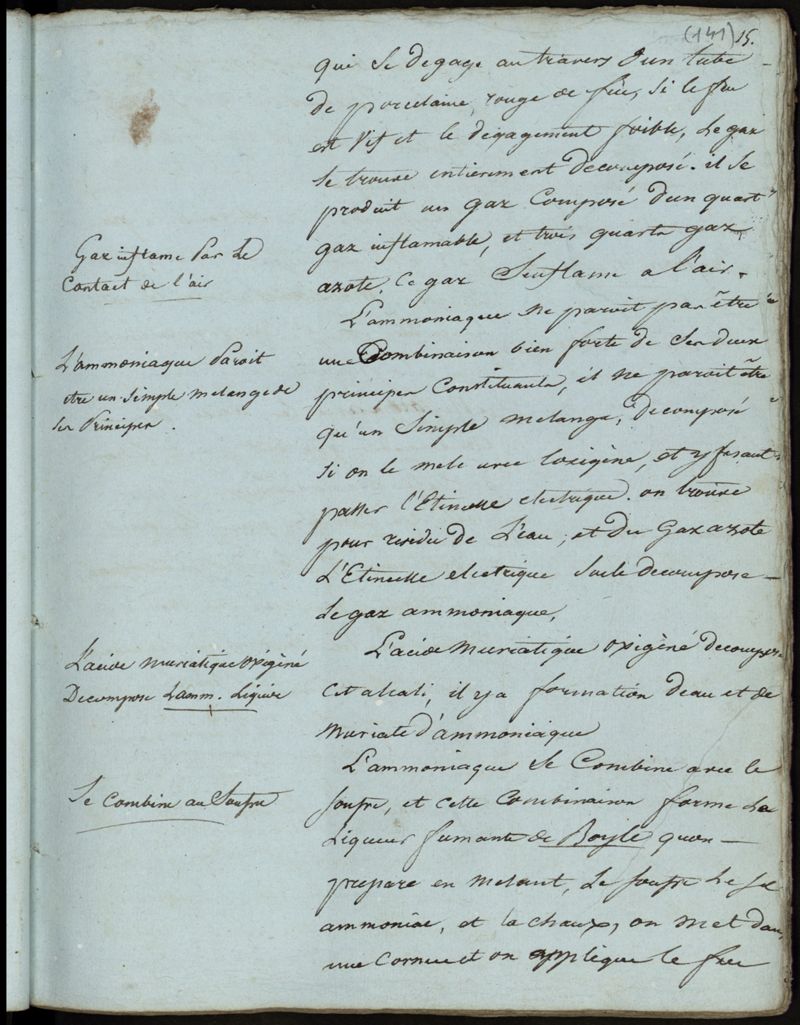 (141) 15.
qui se degage au travers d'un tube
de porcelaine, rouge de feu, si le feu
est vif et le dégagement foible, le gaz
se trouve entierement decomposé. il se
produit un gaz composé d'un quart
gaz inflamable, et trois quarts gaz
azote, ce gaz s'enflame a l'air.
Gaz inflame par le
contact de l'air
L'ammoniaque ne paroit pas être
une Combinaison bien forte de ses deux
principes constituants, il ne paroit être
qu'un simple melange, decomposé
si on le mele avec l'oxigène, et y fesant
passer l'Etincelle electrique. on trouve
pour residu de l'eau, et du Gaz azote
L'Etincelle electrique seule decompose
le gaz ammoniaque,
L'ammoniaque paroit
etre un simple melange de
ses principes.
L'acide muriatique oxigèné decompose
cet alcali, il y a formation d'eau et de
muriate d'ammoniaque
L'acide muriatique oxigèné
Decompose L'amm. Liquide
L'ammoniaque se combine avec le
soufre, et cette combinaison forme la
Liqueur fumante de Boyle quon
prepare en melant, le soufre le sel
ammoniac, et la chaux, on met dans
une cornue et on applique le feu
Se combine au Soufre